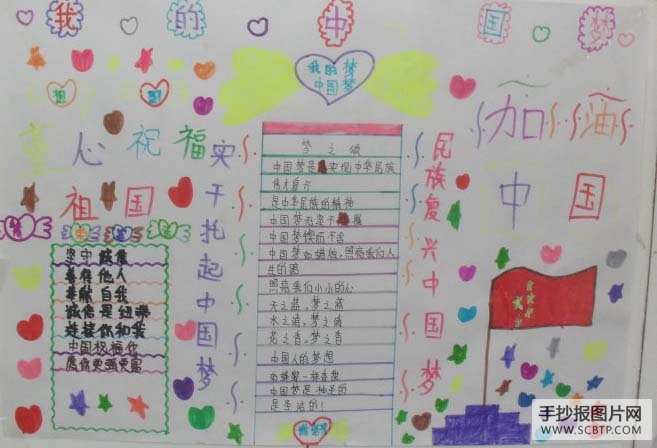 我的中国梦
我的梦
中国梦
加油
中国
童心祝福
祖国
实干托起中国梦
民族复兴中国梦
梦之颂
中国梦是实现中华民族
伟大复兴
是中华民族的精神
中国梦
中国梦锲而不舍
中国梦如蜡烛,照亮我们人
生的路
照亮我们小小的心
天之蓝,梦之蓝
水之清,梦之清
花之香,梦之香
中国人的梦想
如蜂蜜一样香甜
中国梦是神圣的
是圣洁的!
善待他人
奉献自我
诚信是纽带
连接你和我
中国祝福你
愿你更强更富
手抄报图片网
WWW.SCBTP.COM